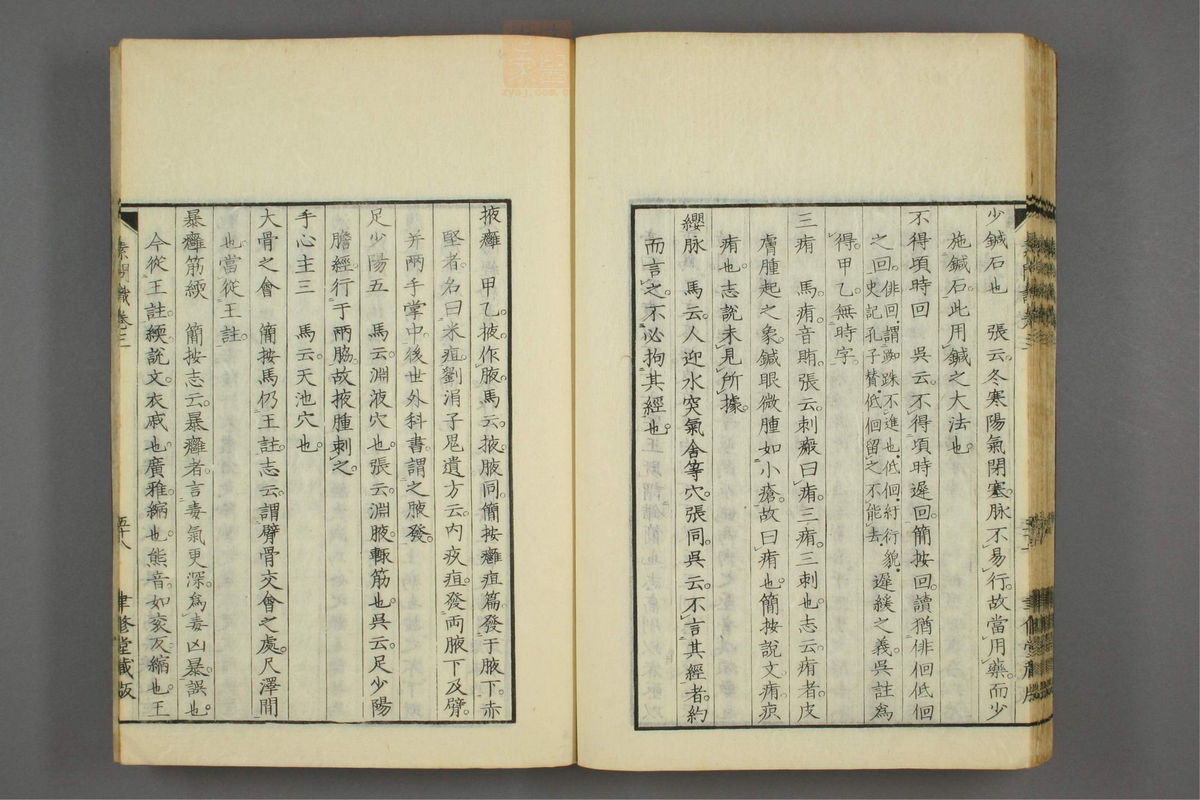 少鍼石也　張云冬寒陽氣閉塞脉不易行故當用藥而少
施鍼石此用鍼之大法也
不得頃時回　吳云不得項時遲回簡按回讀猶俳徊低徊
之回俳徊謂踟跦不進也低徊紆衍貌遲緩之義吳註爲
史記孔子賛低徊留之不能去
得甲乙無時字
三痏　馬痏音賄張云刺瘢曰痏三痏三刺也志云痏者皮
膚腫起之象鍼眼微腫如小瘡故曰痏也簡按說文痏疻
痏也志說未見所據
纓脉　馬云人迎水突氣舍等穴張同吳云不言其經者約
而言之不必拘其經也
掖癰　甲乙掖作腋馬云掖腋同簡按癰疽篇發于腋下赤
堅者名曰米疽劉涓子鬼遺方云内疚疽發両腋下及臂
并兩手掌中後世外科書謂之腋發
足少陽五　馬云淵液穴也張云淵腋輒筋也吳云足少陽
膽經行于兩脇故掖腫刺之
手心主三　馬云天池穴也
大骨之會　簡按馬仍王註志云謂臂骨交會之處尺澤間
也當從王註
暴癰筋緛　簡按志云暴癰者言毒氣更深爲毒凶暴誤也
今從王註緛說文衣戚也廣雅縮也熊音如兖反縮也王
素問識卷三
五十八
聿修堂藏版